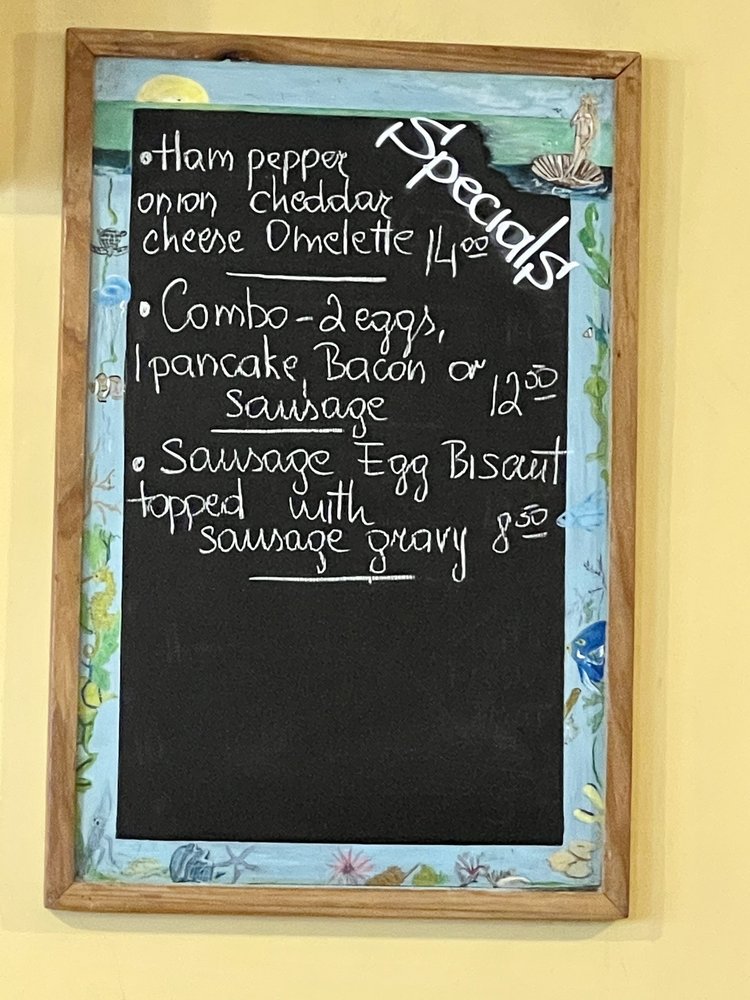 Specials
•Ham pepper
onion cheddar
cheese Omelette 14⁰⁰
• Combo-2 eggs,
1 pancake, Bacon or
sausage 12⁵⁰
• Sausage Egg Biscuit
topped with
sausage gravy 8⁵⁰